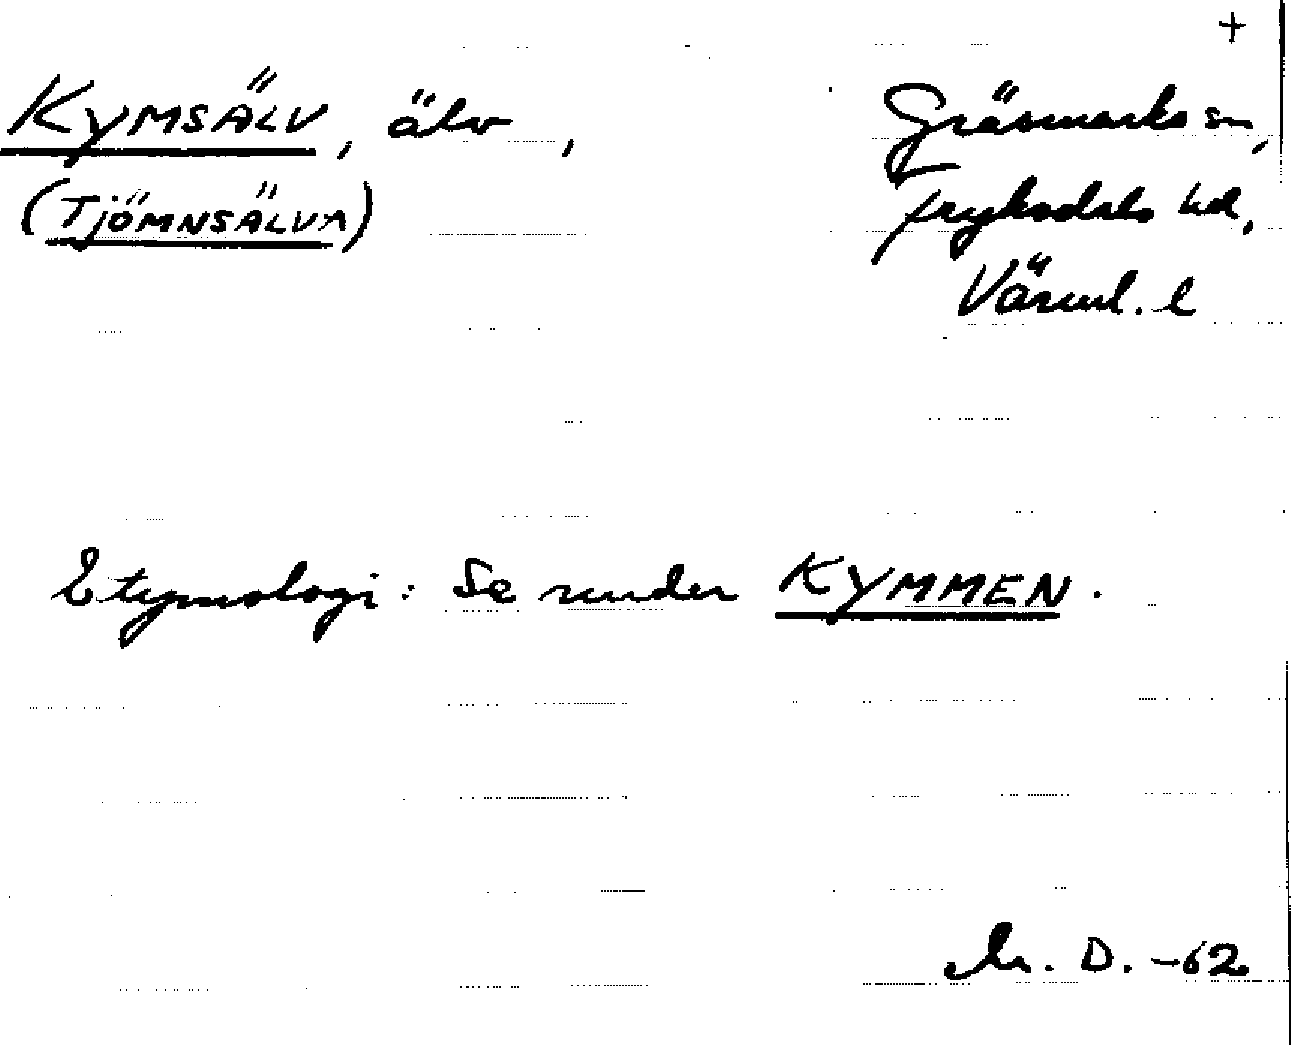 +
KYMSÄLV, älv, Gräsmarks sn,
(TJÖMNSÄLVA) Fryksdals hd,
Värml. l
Etymologi: Se under KYMMEN.
D. -62